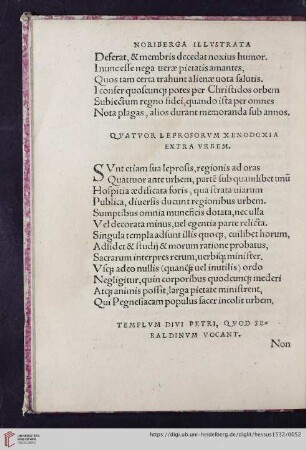 NORIBERGA ILLVSTRATA
Deferat, & membris decedat noxius humor.
I nunc esse nega veræ pietatis amantes,
Quos tam certa trahunt alienæ vota salutis.
I confer quoscunq; potes per Christidos orbem
Subiectum regno fidei, quando ista per omnes
Nota plagas, alios durant memoranda sub annos.
QVATVOR LEPROSORVM XENODOXIA
EXTRA VRBEM.
SVnt etiam sua leprosis, regionis ad oras
Quatuor ante urbem, partē sub quamlibet unū
Hospitia ædificata foris, qua strata uiarum
Publica, diuersis ducunt regionibus urbem.
Sumptibus omnia munificis dotata, nec ulla
Vel decorata minus, uel egentia parte relicta.
Singula templa adsunt illis quoq;, cuilibet horum,
Adsidet & studij & morum ratione probatus,
Sacrarum interpres rerum, uerbiq; minister,
Vsq; adeo nullis (quanq̃ uel inutilis) ordo
Negligitur, quin corporibus quodcunq; mederi
Atq; animis possit, larga pietate ministrent,
Qui Pegnesiacam populus sacer incolit urbem,
TEMPLVM DIVI PETRI, QVOD SE-
RALDINVM VOCANT.
Non
UNIVERSITÄTS-
BIBLIOTHEK
HEIDELBERG
https://digi.ub.uni-heidelberg.de/diglit/hessus1532/0052